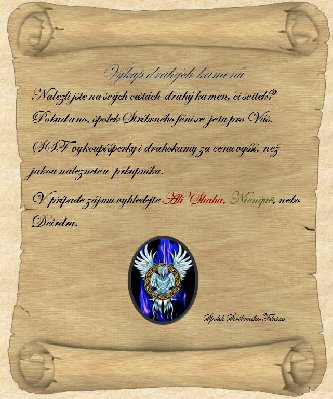 Výkup drahých kamenů
Nalezli jste na svých cestách drahý kamen, či
Pokud ano, spolek Stříbrného fénixe je tu pro Vás.
SSF vykoupí šperky i drahokamy za cenu vyšší, než
jakou naleznete u překupníka.
V případě zájmu vyhledejte Ali Shaha, Nienque, nebo
Deirdru.
Spolek Stříbrného Fénixe